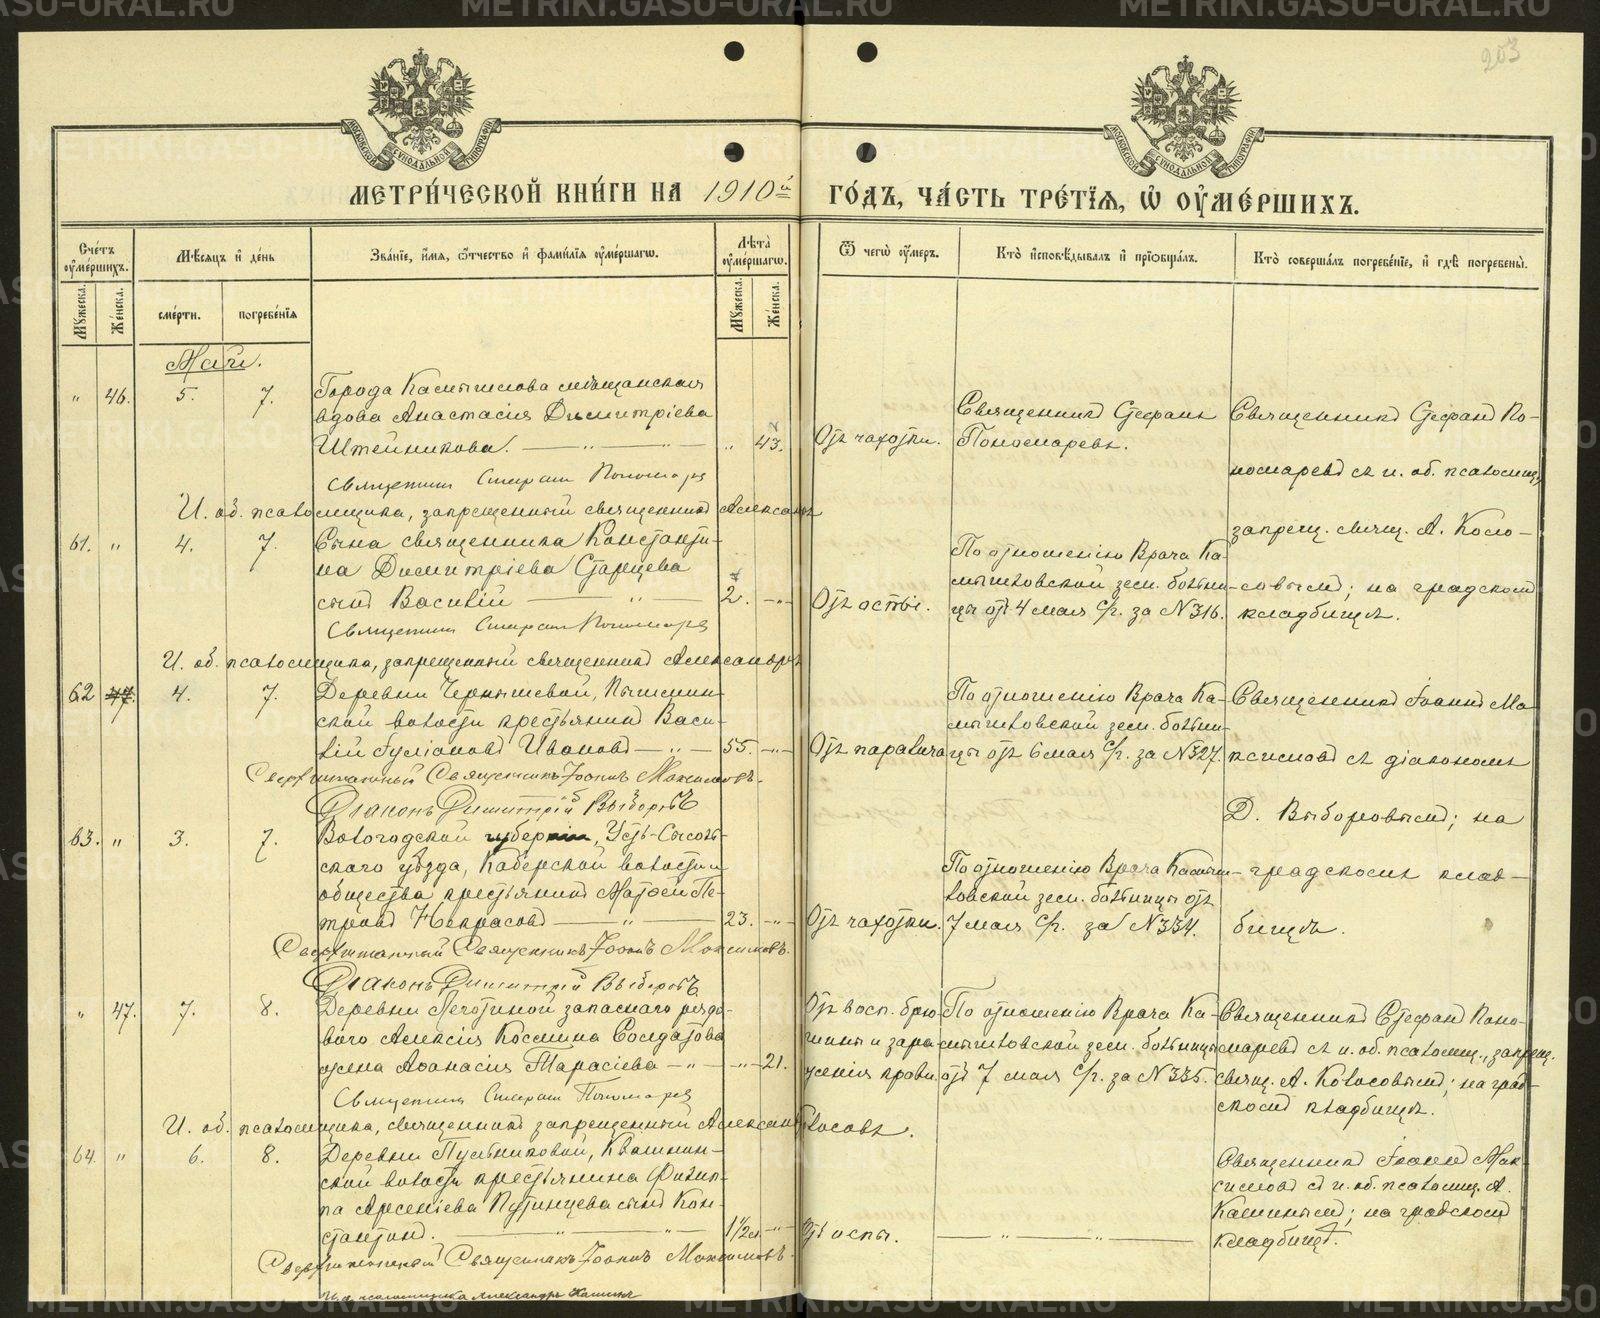 METRIKI.GASU-URAL.RU
203
МОСКОВСКОЙ СѴНОДАЛЬНОЙ ТИПОГРАФІИ
МЕТРИ́ЧЕСКОЙ КНИ́ГИ НА 1910й ГО́ДЪ, ЧА́СТЬ ТРЕ́ТІѦ, Ѽ ОУ҆МЕ́РШИХЪ.
Сче́тъ оу҆ме́ршихъ.
Мѣ́сѧцъ и҆ де́нь
Зва́нїе, и҆́мѧ, ѻ҆́тчество и҆ фами́лїѧ оу҆ме́ршагѡ.
Лѣ́та оу҆ме́ршагѡ.
Ѿ чегѡ̀ оу҆́меръ.
Кто̀ и҆сповѣ́дывалъ и҆ прїѡбща́лъ.
Кто̀ соверша́лъ погребе́нїе, и҆ гдѣ̀ погребены̀.
Мꙋ́жеска. Же́нска.
сме́рти. погребе́нїѧ
Мꙋ́жеска. Же́нска.
Май.
" 46. 5. 7. Города Камышлова мѣщанская
вдова Анастасія Димитріева
Штейникова. — " — " — " 43. Отъ чахотки.
Священникъ Стефанъ
Пономаревъ.
Священникъ Стефанъ По-
номаревъ съ и. об. псаломщ.
запрещ. свящ. А. Коло-
совымъ; на градскомъ
кладбищѣ.
Священникъ Стефанъ Пономаревъ
И. об. псаломщика, запрещенный священникъ Александръ
61. " 4. 7. Сына священника Константи-
на Димитріева Старцева
сынъ Василій — " — 2. — " — Отъ оспы.
По отношенію Врача Ка-
мышловской зем. больни-
цы отъ 4 мая с/г. за № 316.
Священникъ Стефанъ Пономаревъ
И. об. псаломщика, запрещенный священникъ Александръ
62 47. 4. 7. Деревни Чернышевой, Пышмин-
ской волости крестьянинъ Васи-
лій Іуліановъ Ивановъ — " — 55. — " — Отъ паралича
По отношенію Врача Ка-
мышловской зем. больни-
цы отъ 6 мая с/г. за № 327.
Священникъ Іоаннъ Ма-
ксимовъ съ діакономъ
Д. Выборовымъ; на
градскомъ клад-
бищѣ.
Сверхштатный Священникъ Іоаннъ Максимовъ.
Діаконъ Димитрій Выборовъ
63. " 3. 7. Вологодской губерніи, Усть-Сысоль-
скаго уѣзда, Кaберской волости и
общества крестьянинъ Матѳей Пе-
тровъ Некрасовъ — " — 23. — " — Отъ чахотки.
По отношенію Врача Камыш-
ловской зем. больницы отъ
7 мая с/г. за № 334.
Сверхштатный Священникъ Іоаннъ Максимовъ.
Діаконъ Димитрій Выборовъ
" 47. 7. 8. Деревни запаснаго рядо-
вого Алексія Космина Солдатова
жена Аѳанасія Тарасіева — " — — " — 21.
Отъ восп. брю-
шины и зара-
женія крови
По отношенію Врача Ка-
мышловской зем. больницы
отъ 7 мая с/г. за № 335.
Священникъ Стефанъ Поно-
маревъ съ и. об. псаломщ., запрещ.
свящ. А. Колосовымъ; на град-
скомъ кладбищѣ.
Священникъ Стефанъ Пономаревъ
И. об. псаломщика, священникъ запрещенный Александръ Колосовъ.
64. " 6. 8. Деревни Пульниковой, Квашнин-
ской волости крестьянина Филип-
па Арсеніева Путинцева сынъ Кон-
стантинъ. — " — " — 1 1/2 м — " — Отъ оспы.
— " — " —
Священникъ Іоаннъ Мак-
симовъ съ и. об. псаломщ. А.
Кашинымъ; на градскомъ
кладбищѣ.
Сверхштатный Священникъ Іоаннъ Максимовъ.
И. д. псаломщика Александръ Кашинъ